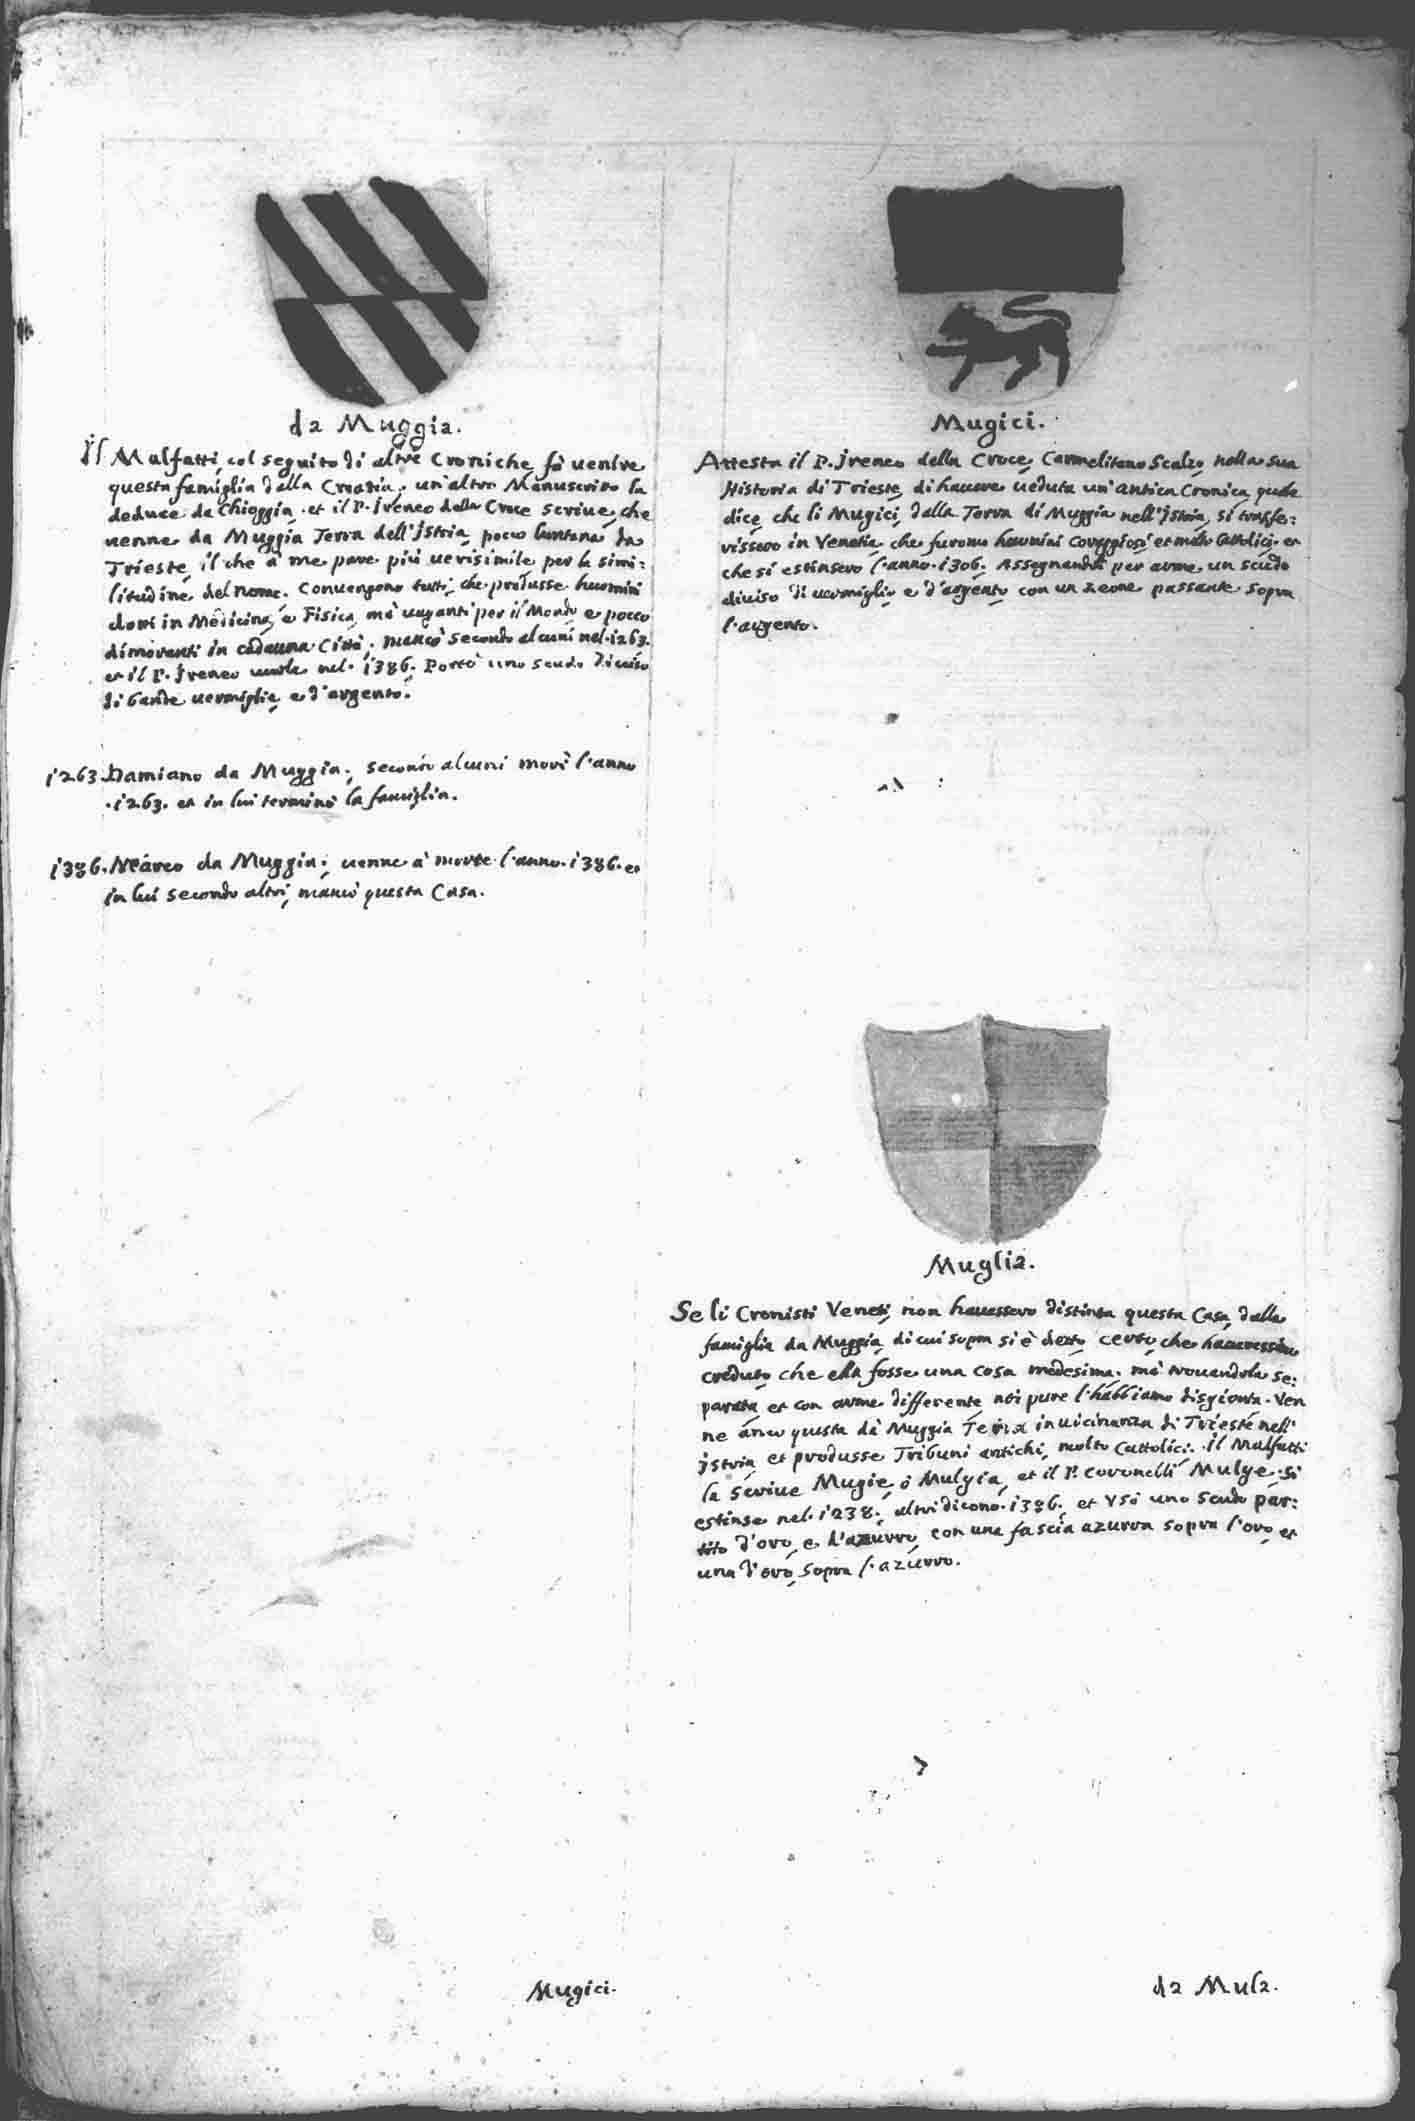 da Muggia.
Il Malfatti, col seguito di altre Croniche, fà uenire
questa famiglia dalla Croazia. un'altro Manuscritto la
deduce da Chioggia. et il P. Ireneo della Croce scriue, che
uenne da Muggia Terra dell'Istria, poco luntana da
Trieste, il che à me pare più uerisimile per la simi:
litudine del nome. Conuengono tutti, che produsse huomini
dotti in Medicina, e Fisica, mà uaganti per il Mondo e pocco
dimoranti in cadauna Città. mancò secondo alcuni nel. 1263.
et il P. Ireneo uuole nel. 1386. Portò uno scudo diuiso
di bande uermiglie, e d'argento.
1263. Damiano da Muggia, secondo alcuni morì l'anno
.1263. et in lui terminò la famiglia.
1386. Marco da Muggia; uenne à morte l'anno. 1386. et
in lui secondo altri, mancò questa Casa.
Mugici.
Attesta il P. Ireneo della Croce, Carmelitano Scalzo nella sua
Historia di Trieste, di hauere ueduta un'antica Cronica, quale
dice, che li Mugici, dalla Terra di Muggia nell'Istria, si trasfe:
rissero in Venetia, che furono huomini Coraggiosi, et molto Cattolici. et
che si estinsero l'anno. 1306. Assegnandoli per arme, un scudo
diuiso di uermiglio e d'argento con un Leone passante sopra
l'argento.
Muglia.
Se li Cronisti Veneti, non hauessero distinta questa Casa, dalla
famiglia da Muggia, di cui sopra si è detto, certo, che haueressimo
creduto, che ella fosse una cosa medesima. mà trouandola se:
parata, et con arme differente, noi pure l'habbiamo disgionta. Ven
ne anco questa da Muggia Terra in uicinanza di Trieste nell'
Istria, et produsse Tribuni antichi, molto Cattolici. Il Malfatti
la scriue Mugie, ò Mulgia, et il P. Coronelli Mulge. Si
estinse nel. 1238. altri dicono. 1386. et Vsò uno Scudo par:
tito d'oro, e d'azurro, con una fascia azurra sopra l'oro, et
una d'oro, sopra l'azurro.
Mugici.
da Mula.